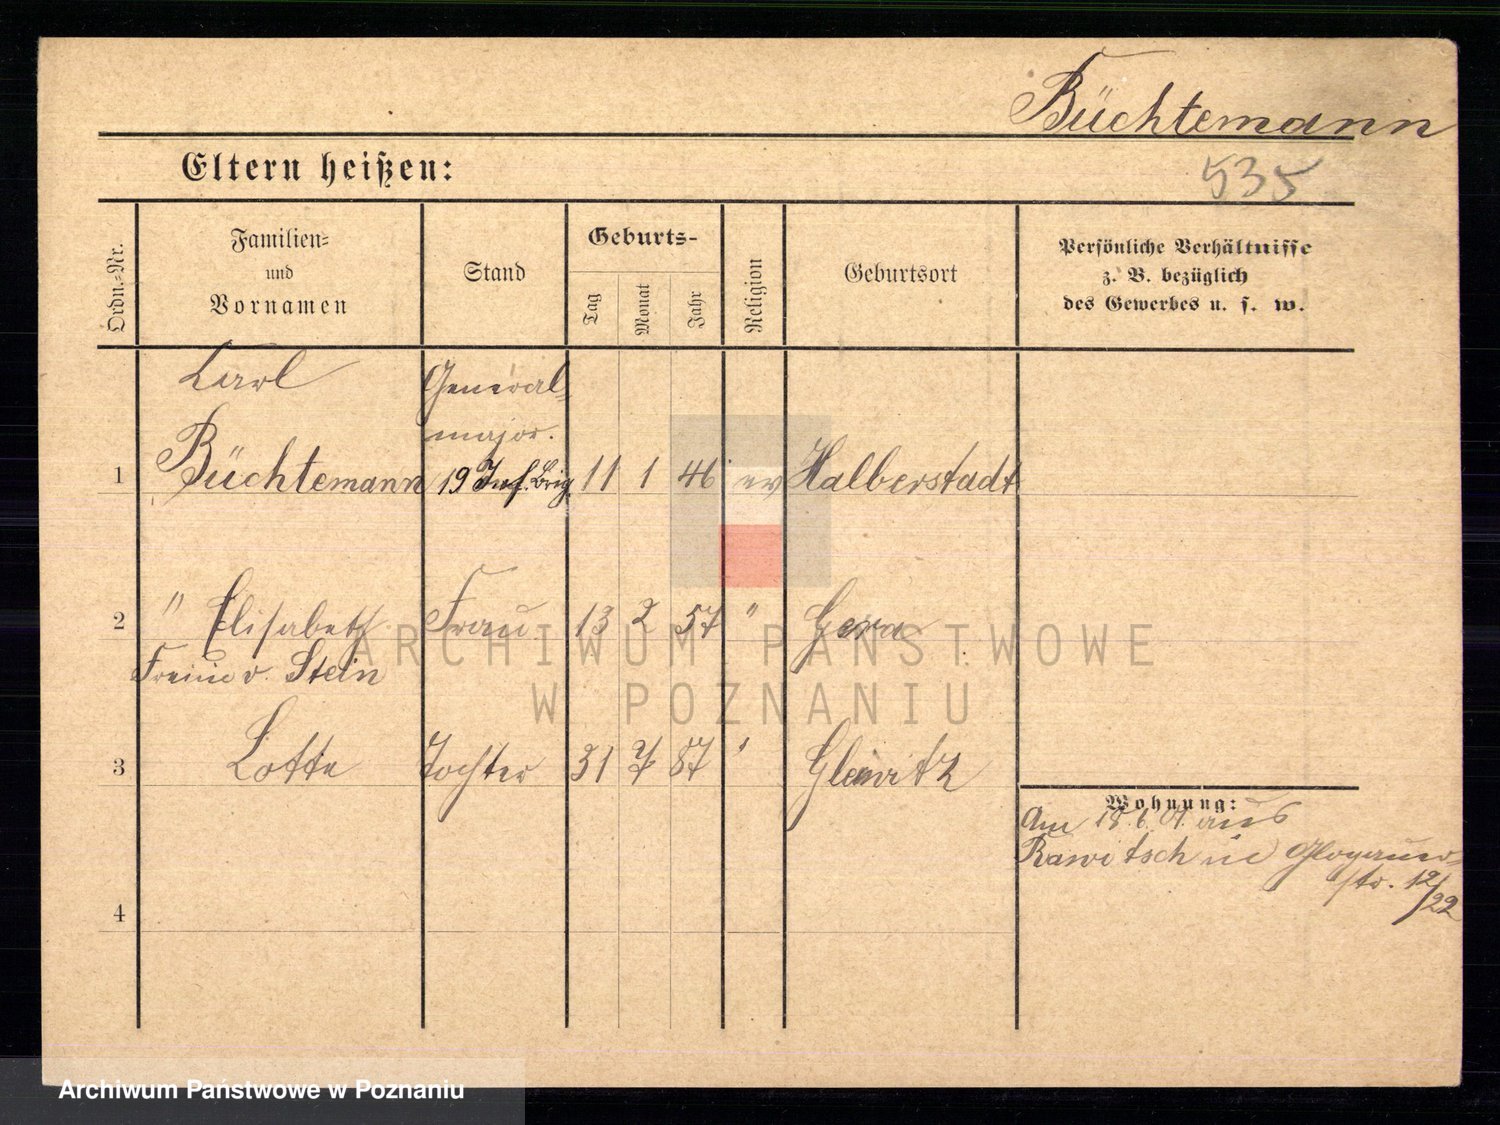 Büchtemann
Eltern heißen:
535
Ordn.-Nr.
Familien-
und
Vornamen
Stand
Geburts-
Tag
Monat
Jahr
Religion
Geburtsort
Persönliche Verhältnisse
z. B. bezüglich
des Gewerbes u. s. w.
Carl
General-
major.
1 Büchtemann 19 Inf. Brig. 11 1 46 ev Halberstadt
2 " Elisabeth Frau 13 2 57 " Gera
v. Stein
3 Lotte Tochter 31 7 87 " Gleiwitz
Wohnung:
Am 18.6.01. aus
Rawitsch Glogauer-
str. 12/22
4
ARCHIWUM PAŃSTWOWE
W POZNANIU
Archiwum Państwowe w Poznaniu